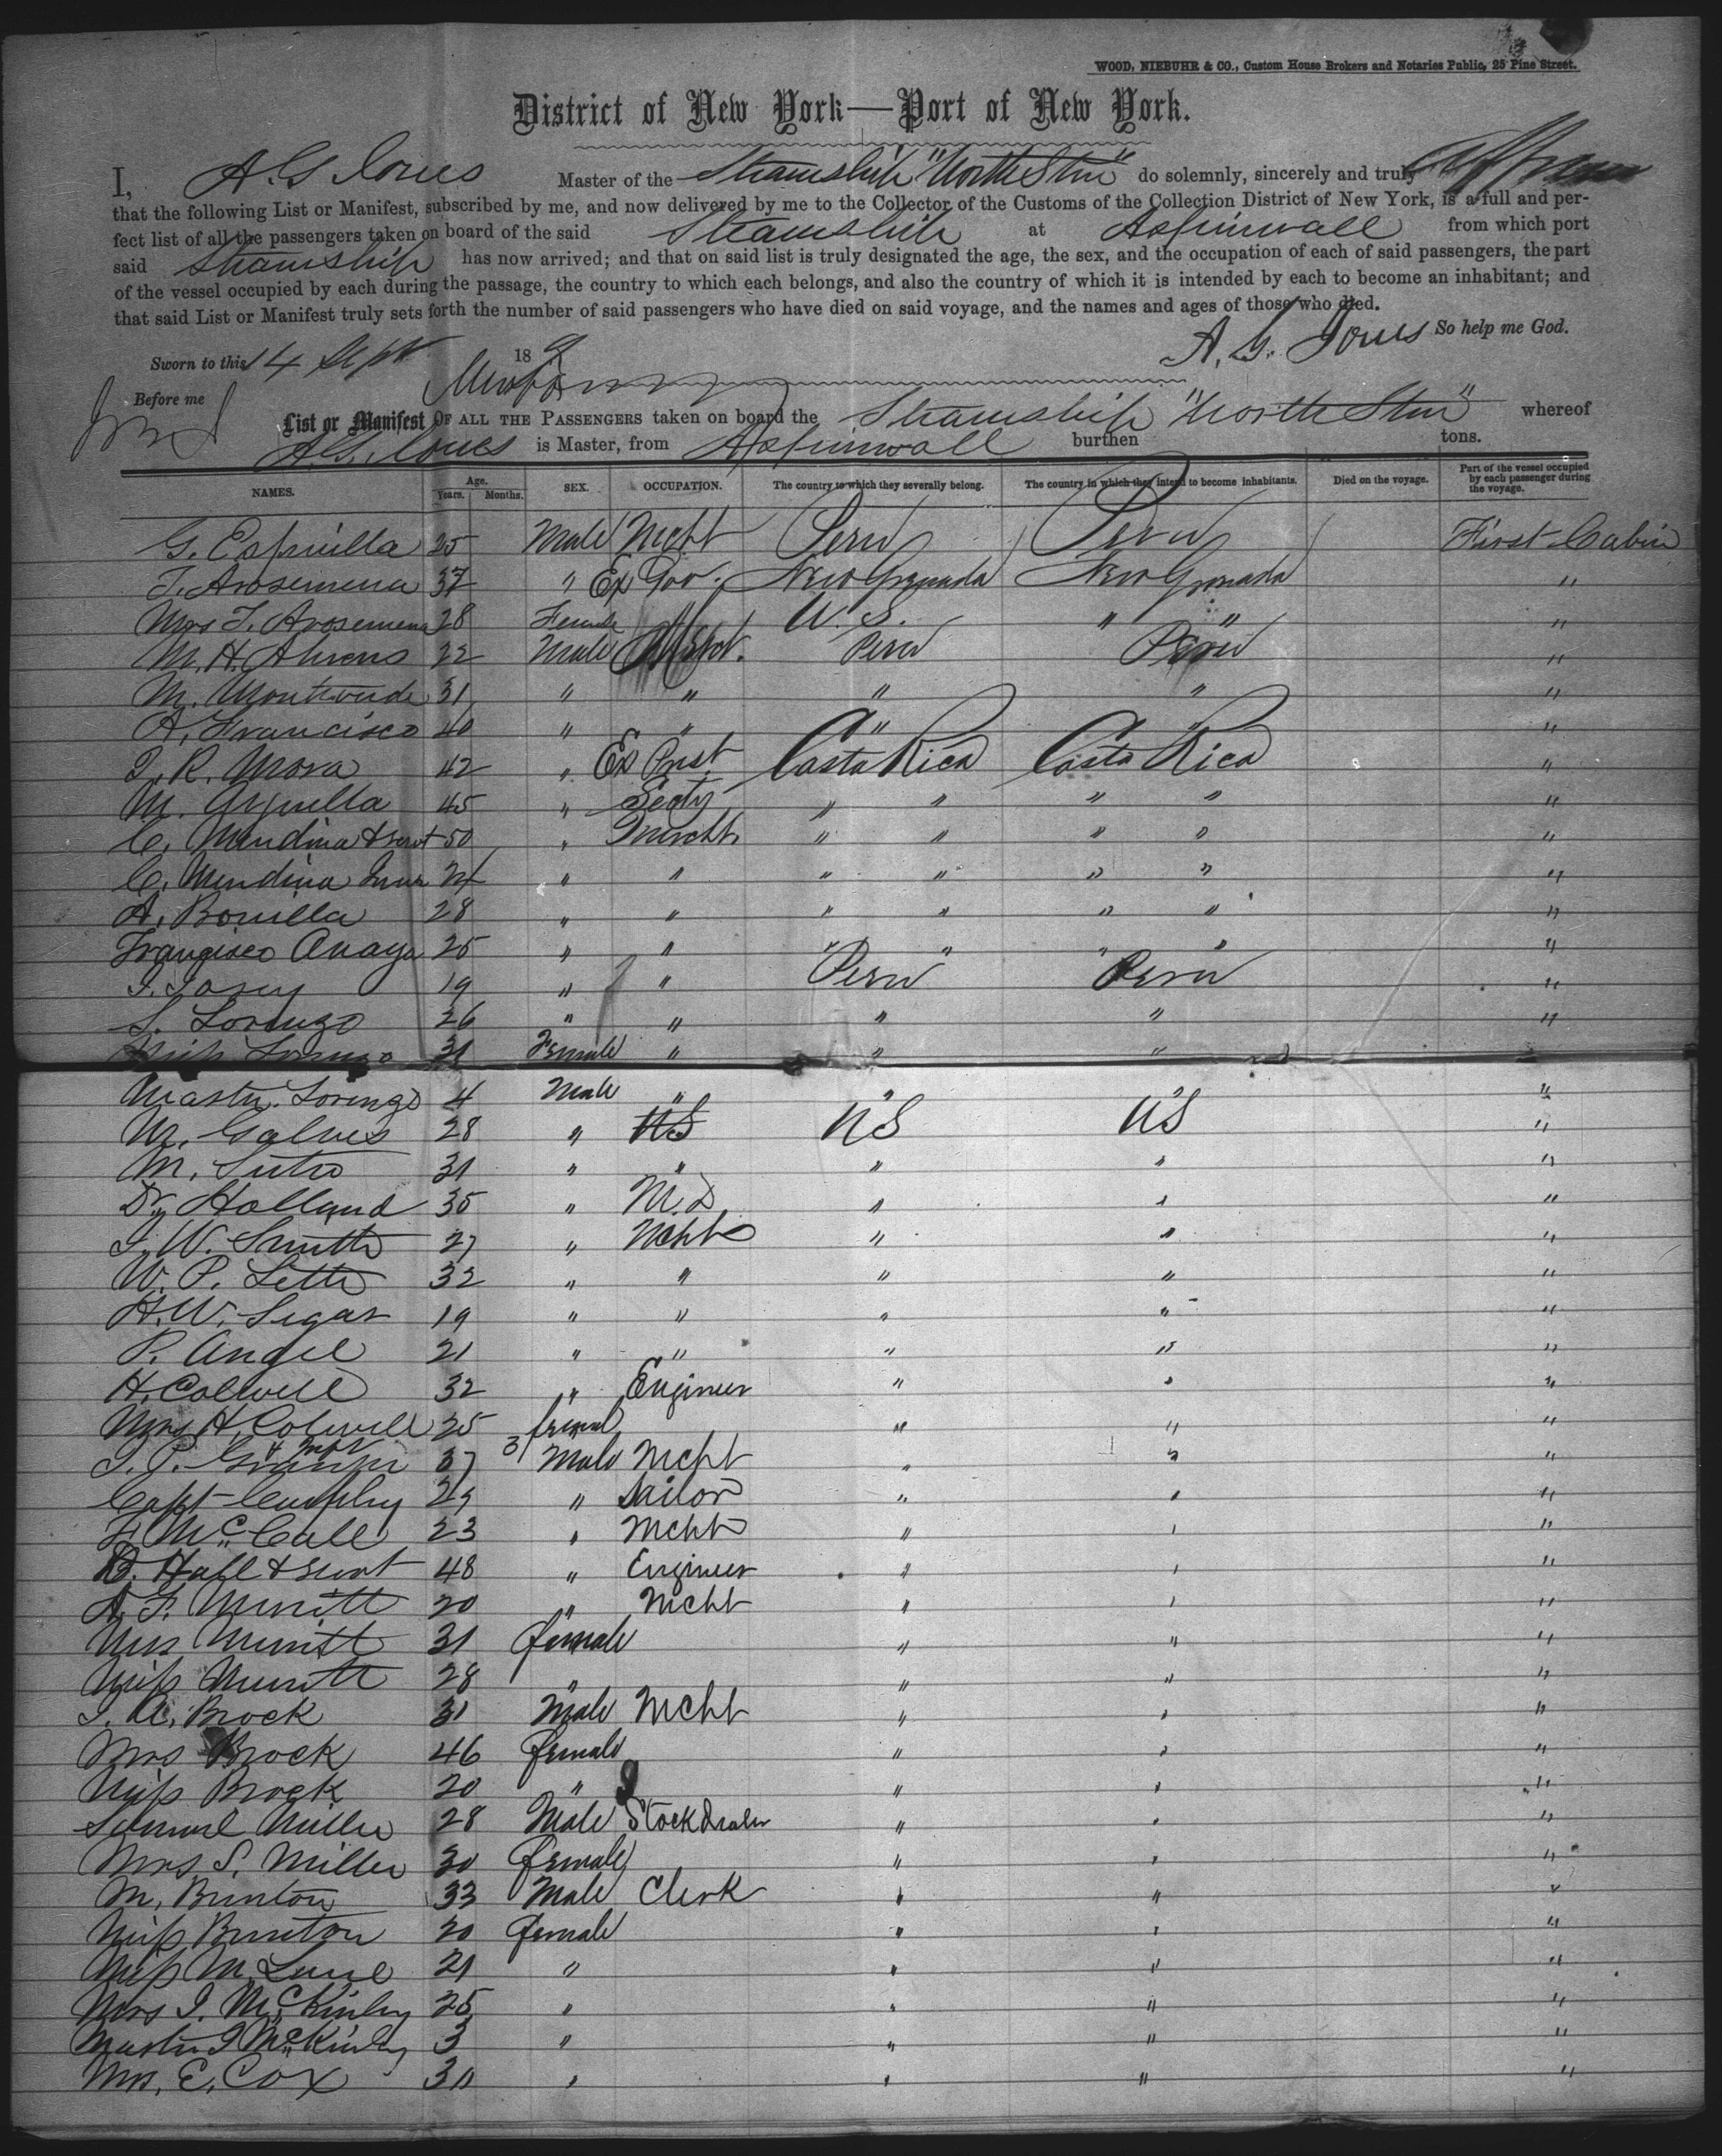 WOOD, NIEBUHR & CO., Custom House Brokers and Notaries Public, 25 Pine Street.
District of New York—Port of New York.
I, A. G. Jones Master of the Steamship "North Star" do solemnly, sincerely and truly
that the following List or Manifest, subscribed by me, and now delivered by me to the Collector of the Customs of the Collection District of New York, is a full and per-
fect list of all the passengers taken on board of the said Steamship at Aspinwall from which port
said Steamship has now arrived; and that on said list is truly designated the age, the sex, and the occupation of each of said passengers, the part
of the vessel occupied by each during the passage, the country to which each belongs, and also the country of which it is intended by each to become an inhabitant; and
that said List or Manifest truly sets forth the number of said passengers who have died on said voyage, and the names and ages of those who died.
A. G. Jones So help me God.
Sworn to this 14 Sept 18 9
Before me
List or Manifest OF ALL THE PASSENGERS taken on board the Steamship "North Star" whereof
A. G. Jones is Master, from Aspinwall burthen tons.
NAMES. Age. Years. Months. SEX. OCCUPATION. The country to which they severally belong. The country in which they intend to become inhabitants. Died on the voyage. Part of the vessel occupied by each passenger during the voyage.
G. Espinilla 25 Male Mcht Peru Peru First Cabin
T. Arosemena 37 " Ex Gov. New Granada New Granada "
Mrs T. Arosemena 28 Female U. S. " " "
M. H. Ahrens 22 Male Mcht. Peru Peru "
M. 31 " " " " "
A. Francisco 40 " " " " "
J. R. Mora 42 " Ex Prest Costa Rica Costa Rica "
M. 45 " Secty " " " " "
C. Mendina & servt 50 " Mercht " " " " "
C. Mendina Junr 24 " " " " " " "
A. Bonilla 28 " " " " " " "
Francisco Anaya 25 " " " " " " "
19 " " Peru Peru "
S. Lorenzo 26 " " " " "
Miss Lorenzo 31 Female " " " "
Master Lorenzo 4 Male " " " "
M. Galves 28 " US US US "
M. Sutro 31 " " " " "
Dr. Holland 35 " M.D " " "
J. W. Smith 27 " Mcht " " "
W. P. Lette 32 " " " " "
H. W. Segar 19 " " " " "
P. Angel 21 " " " " "
H. Colwell 32 " Engineer " " "
Mrs H. Colwell 25 femal " " "
J. P. 37 Male Mcht " " "
Capt 29 " Sailor " " "
F. McCall 23 " Mcht " " "
D. Hall & servt 48 " Engineer " " "
A. F. Merritt 20 " Mcht " " "
Mrs Merritt 31 female " " "
Miss Merritt 28 " " " "
J. A. Brock 31 Male Mcht " " "
Mrs Brock 46 female " " "
Miss Brock 20 " " " "
Samuel Miller 28 Male Stock Dealer " " "
Mrs S. Miller 30 female " " "
M. Brunton 33 Male Clerk " " "
Miss Brunton 20 female " " "
Miss M. Lune 21 " " " "
Mrs J. McKinley 25 " " " "
Master J McKinley 3 " " " "
Mrs. E. Cox 30 " " " "